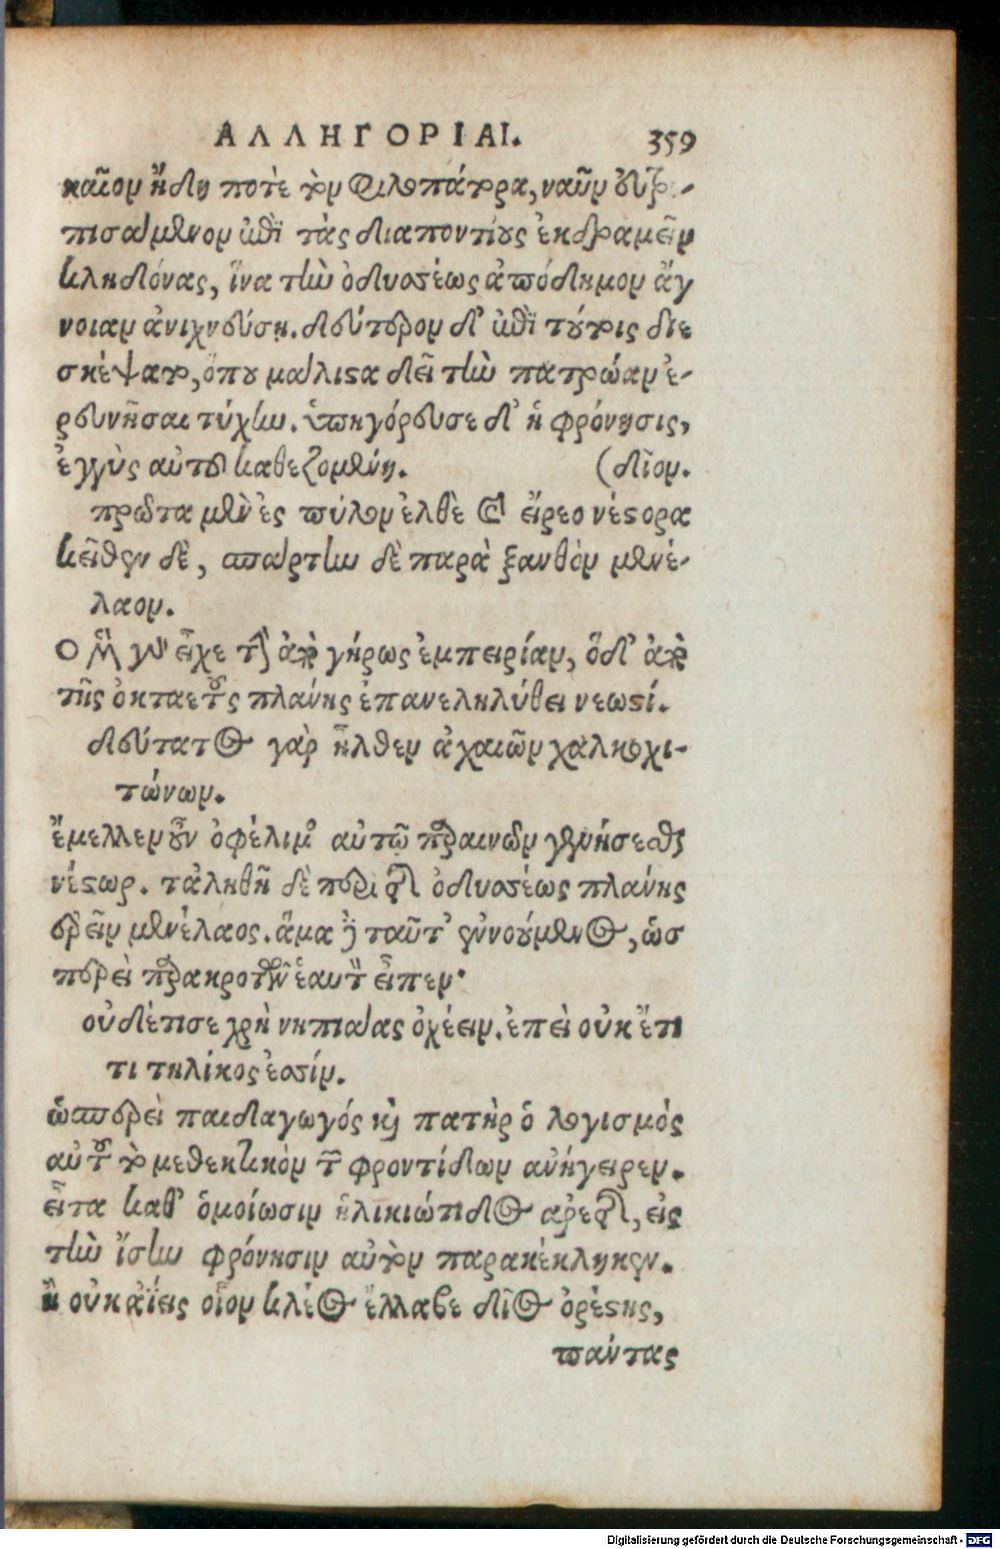 ΑΛΛΗΓΟΡΙΑΙ. 359
καῖον ἤδη ποτὲ τὸν φιλοπάτορα, ναῦν εὐτρε-
πισάμενον ἐπὶ τὰς διαποντίους ἐκδραμεῖν
κληδόνας, ἵνα τὴν ὀδυσσέως ἀπόδημον ἄγ
νοιαν ἀνιχνεύσῃ. δεύτερον δ' ἐπὶ τούτοις διε
σκέψατο, ὅπου μάλιστα δεῖ τὴν πατρῴαν ἐ-
ρευνῆσαι τύχην. ὑπηγόρευσε δ' ἡ φρόνησις,
ἐγγὺς αὐτοῦ καθεζομένη. (δῖον.
πρῶτα μὲν ἐς πύλον ἐλθὲ καὶ εἴρεο νέστορα
κεῖθεν δὲ, σπάρτην δὲ παρὰ ξανθὸν μενέ-
λαον.
Ο μὲν γὰρ εἶχε τὴν ἀπὸ γήρως ἐμπειρίαν, ὁ δ' ἀπὸ
τῆς ὀκταετοῦς πλάνης ἐπανεληλύθει νεωστί.
δεύτατος γὰρ ἦλθεν ἀχαιῶν χαλκοχι-
τώνων.
ἔμελλεν οὖν ὀφέλιμος αὐτῷ παραινῶν γενήσεσθαι
νέστωρ. τἀληθῆ δὲ περὶ τῆς ὀδυσσέως πλάνης
ἐρεῖν μενέλαος. ἅμα δὴ ταῦτ' ἐννοούμενος, ὡσ
περεὶ παρακροτῶν ἑαυτὸν εἶπεν·
οὐδέτι σε χρὴ νηπιάας ὀχέειν. ἐπεὶ οὐκ ἔτι
τι τηλίκος ἐσσίν.
ὡσπερεὶ παιδαγωγός καὶ πατὴρ ὁ λογισμὸς
αὐτοῦ τὸ μεθεκτικὸν τῶν φροντίδων ἀνήγειρεν.
εἶτα καθ' ὁμοίωσιν ἡλικιώτιδος ἀρετῆς, εἰς
τὴν ἴσην φρόνησιν αὐτὸν παρακέκληκεν.
ἢ οὐκ ἀΐεις οἷον κλέος ἔλλαβε δῖος ὀρέστης,
πάντας
Digitalisierung gefördert durch die Deutsche Forschungsgemeinschaft - DFG